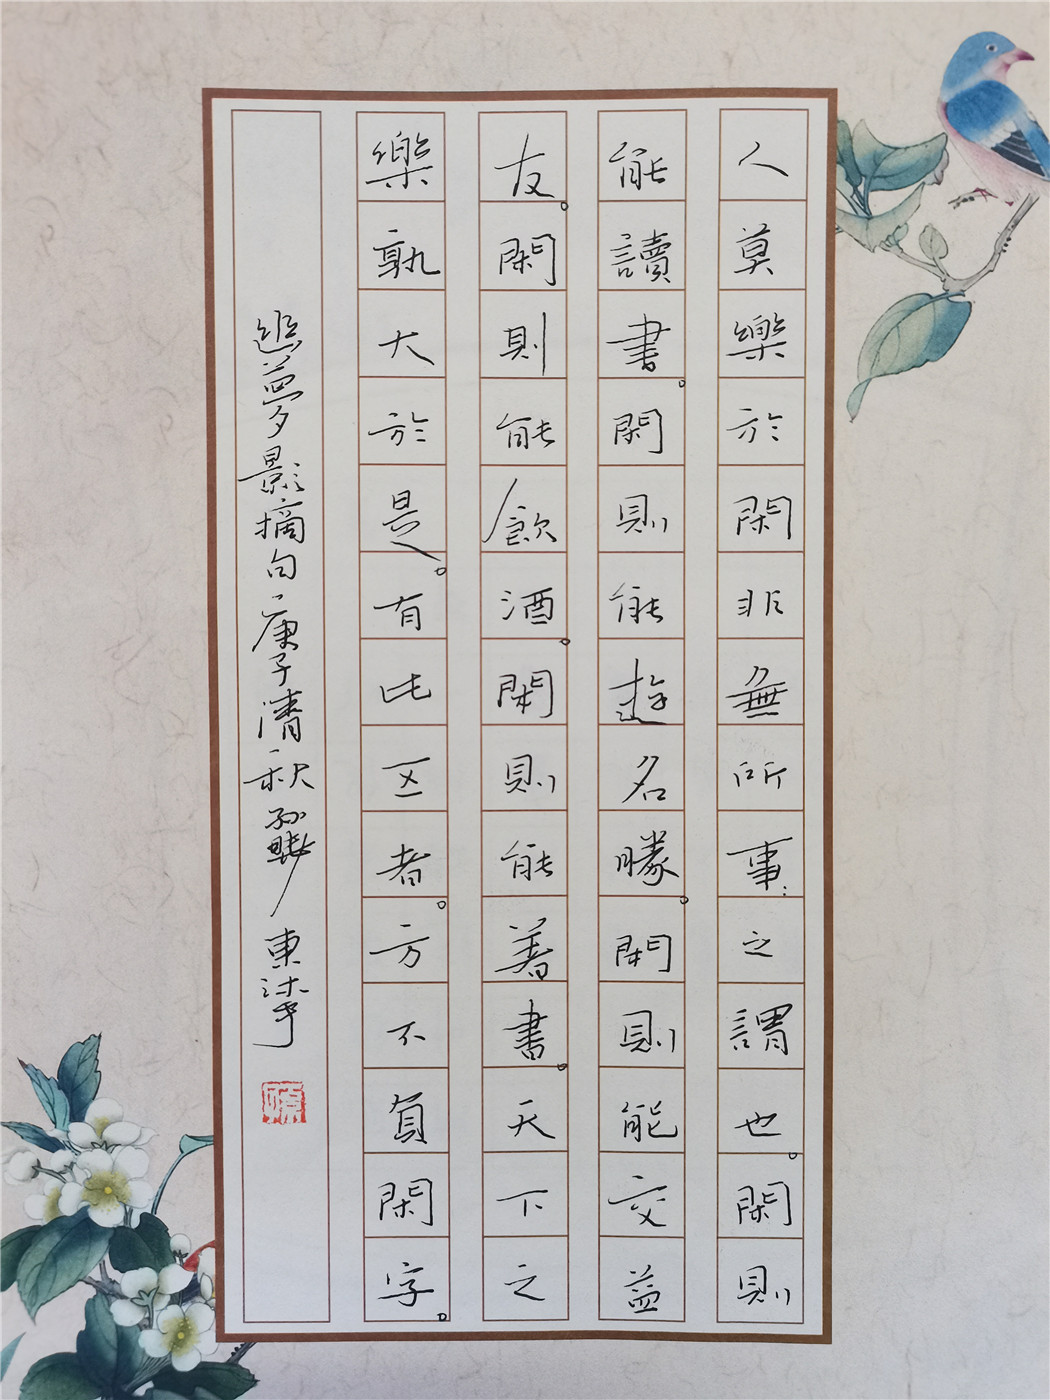 人莫樂於閑非無所事之謂也。閑則
能讀書。閑則能遊名勝。閑則能交益
友。閑則能飲酒。閑則能著書。天下之
樂孰大於是。有此五者。方不負閑字。
夢影摘句庚子清秋 東